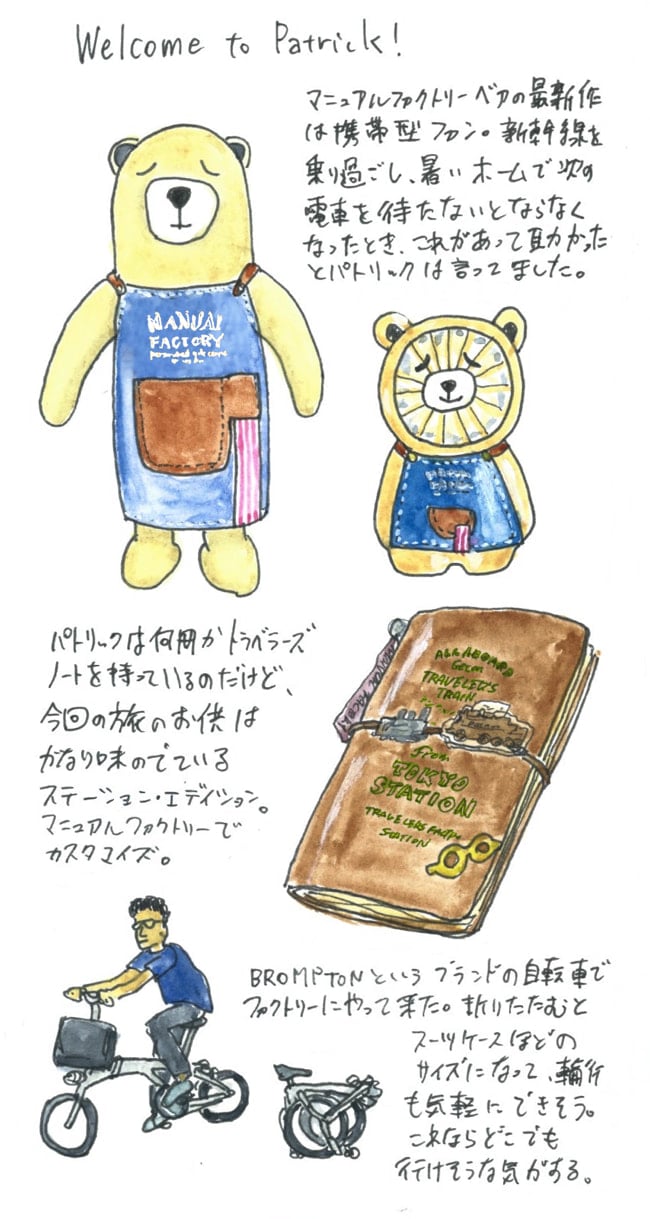 Welcome to Patrick!
マニュアルファクトリーベアの最新作
は携帯型ファン。新幹線を
乗り過ごし、暑いホームで次の
電車を待たないとならなく
なったとき、これがあって助かった
とパトリックは言ってました。
MANUAL
FACTORY
パトリックは何冊かトラベラーズ
ノートを持っているのだけど、
今回の旅のお供は
かなり味のでている
ステーション・エディション。
マニュアルファクトリーで
カスタマイズ。
ALL ABOARD
TRAVELER'S
TRAIN
from
TOKYO
STATION
TRAVELERS
STATION
BROMPTONというブランドの自転車で
ファクトリーにやって来た。折りたたむと
スーツケースほどの
サイズになって、輪行
も気軽にできそう。
これならどこでも
行けそうな気がする。